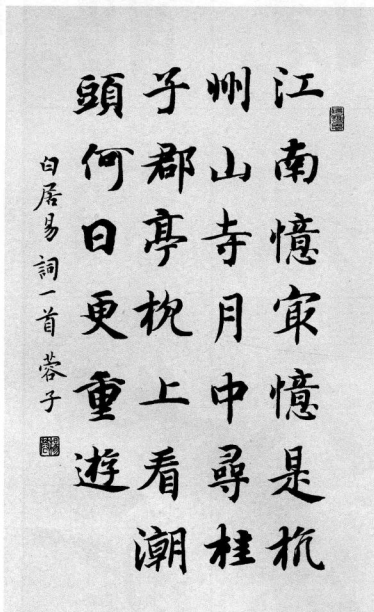 江南憶冣憶是杭
州山寺月中尋桂
子郡亭枕上看潮
頭何日更重遊
白居易詞一首 蓉子